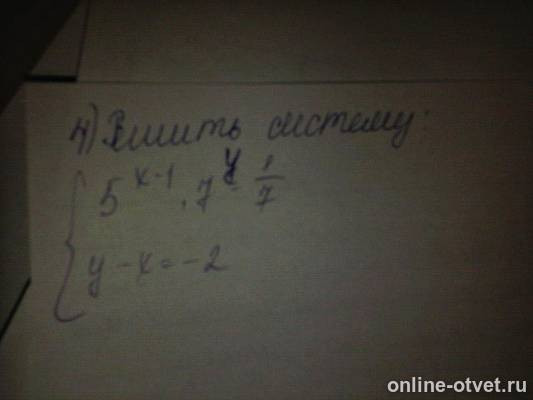 4) Решить систему:
5^{x-1} · 7^y = 1/7
y - x = -2
online-otvet.ru